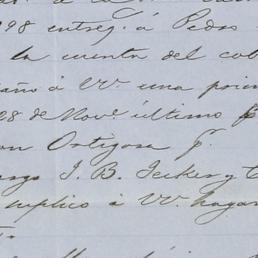 98 entreg. á Pedro
la cuenta del cob
año á VV. una prim
28 de Nove. último p
on Ortigosa p.
argo J. B. Jecker y C
suplico á VV. hagan